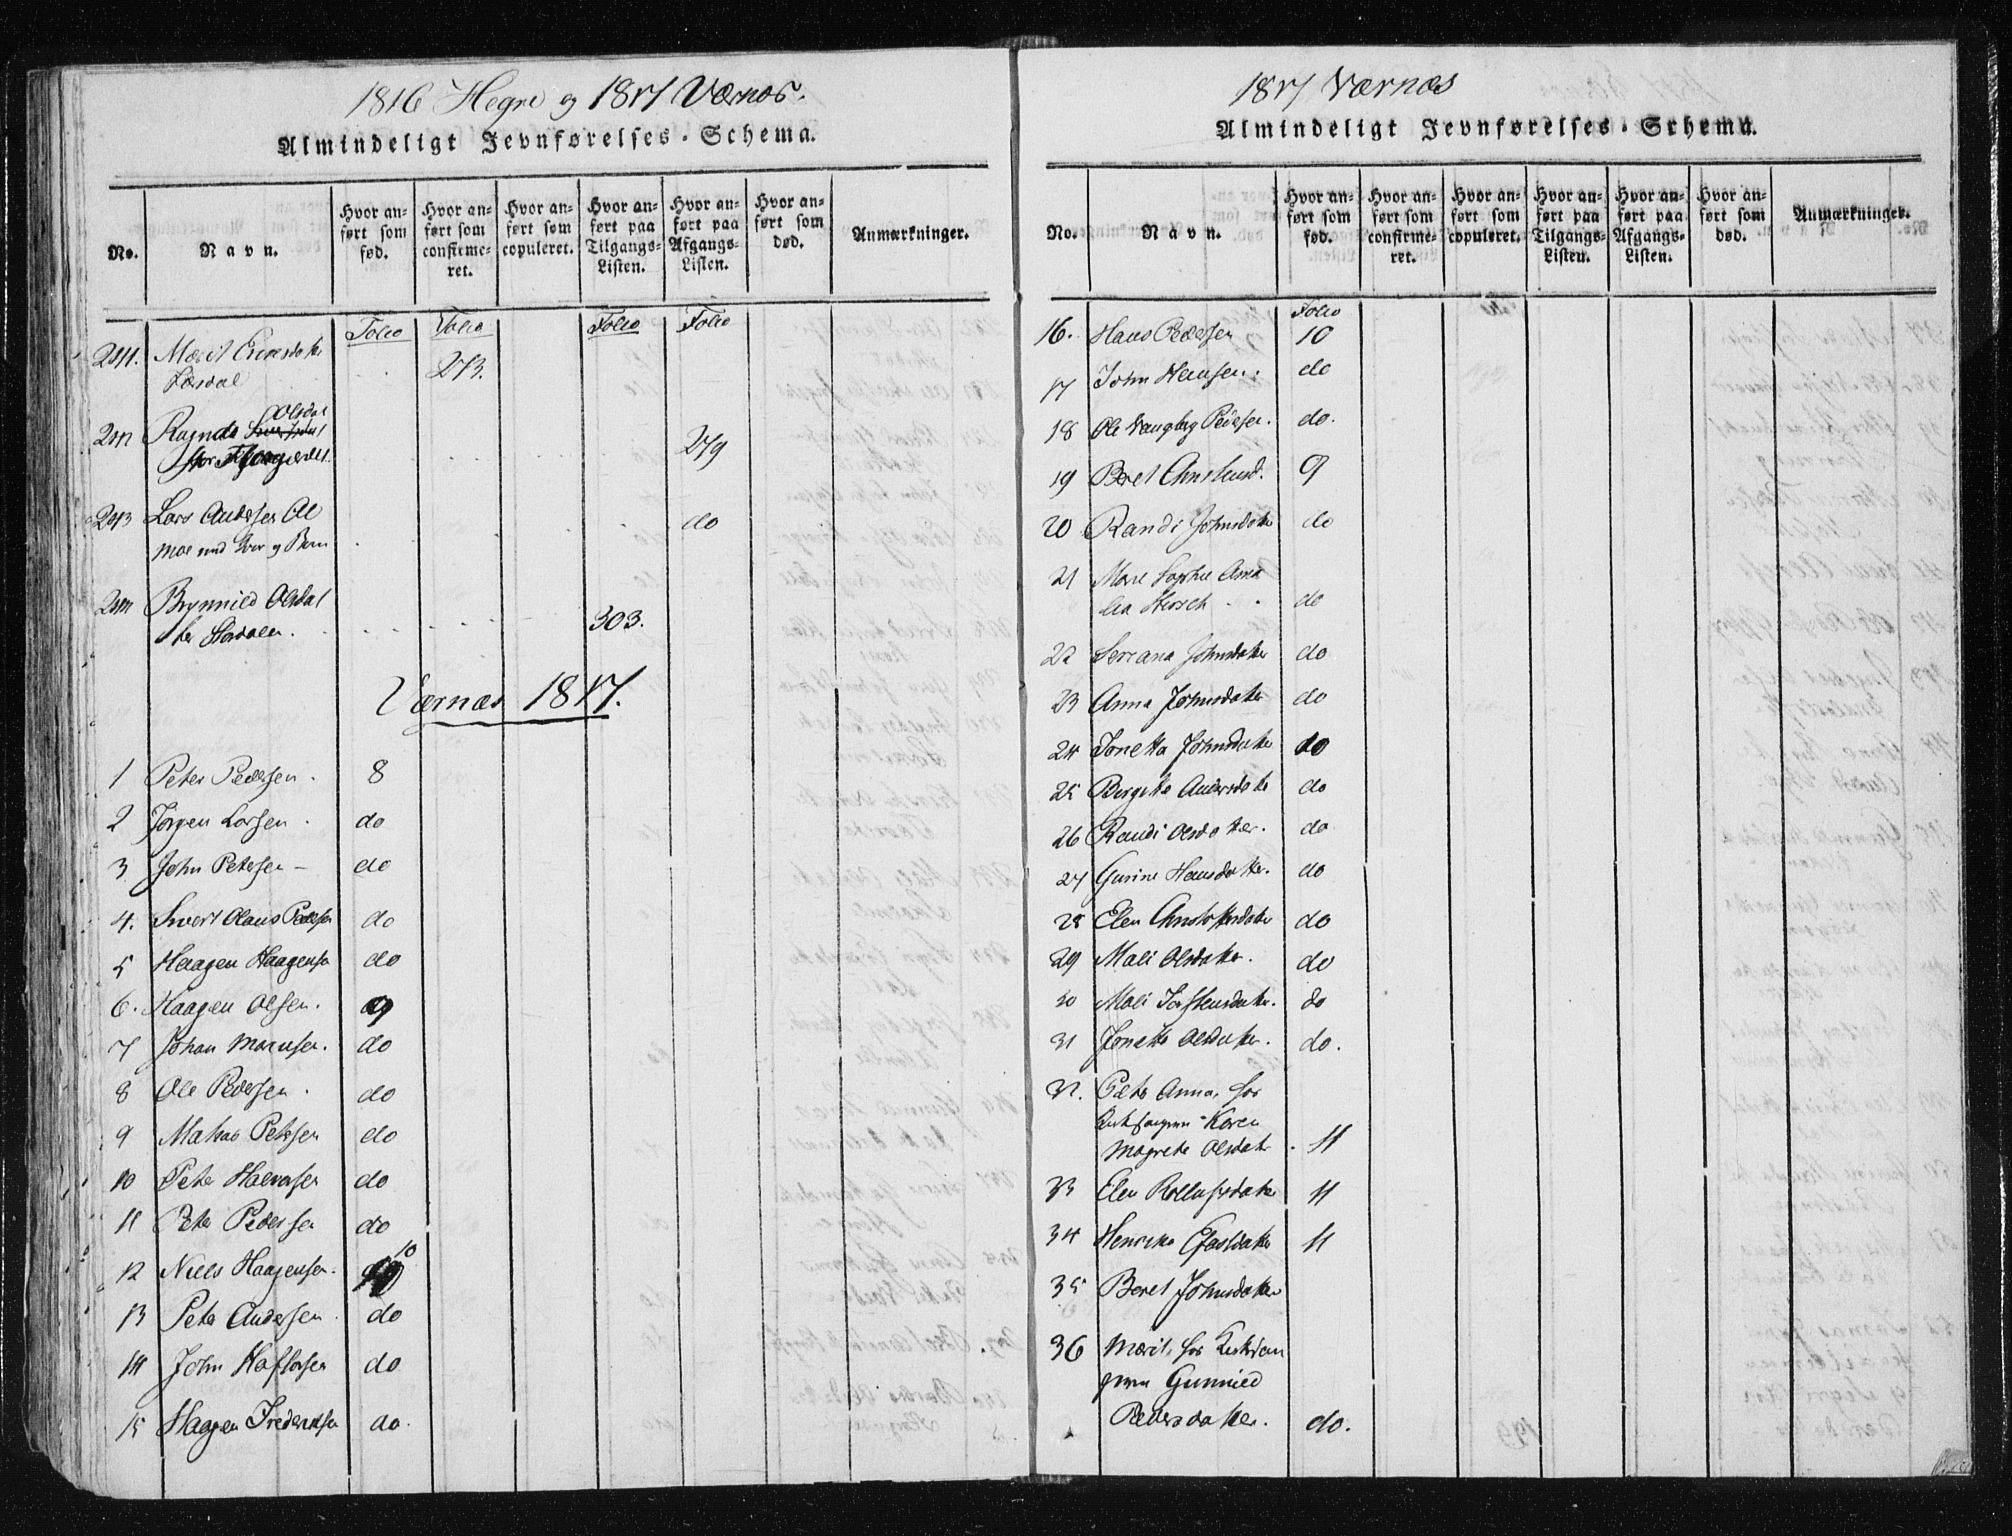 1816 Hegre og 1817 Værnes.
Almindeligt Jevnførelses-Schema.
No.
Navn.
Hvor anført som fød.
Hvor anført som confirmeret.
Hvor anført som copuleret.
Hvor anført paa Tilgangs-Listen.
Hvor anført paa Afgangs-Listen.
Hvor anført som død.
Anmærkninger.
Folio Folio Folio Folio
241. Marit
273.
242 Olsdat
279
243 Lars Andersen
do
244 Brynnild Olsdat
ter 303.
Værnes 1817.
1 Peter Pedersen. 8
2 Jørgen Larsen. do
3 John Petersen - do
4. Sivert Olaus Pedersen do
5 Haagen Haagensen do
6. Haagen Olsen. 9
7 Johan do
8 Ole Pedersen. do
9 Mathias Petersen do
10 Peter Halvorsen do
11 Peter Pedersen do
12 Niels Haagensen. 10
13 Peter Andersen do
14 John Haftorsen do
15 Haagen Fredericksen do.
1817 Værnes
Almindeligt Jevnførelses-Schema.
No.
Navn.
Hvor anført som fød.
Hvor anført som confirmeret.
Hvor anført som copuleret.
Hvor anført paa Tilgangs-Listen.
Hvor anført paa Afgangs-Listen.
Hvor anført som død.
Anmærkninger.
Folio
16. Hans Pedersen 10
17 John Hansen. do
18 Ole Vangberg Pedersen. do.
19 Beret 9
20 Randi Johnsdatter do
21 Maren Sophie
do
22 Johnsdatter do
23 Anna Johnsdatter do
24 Jonetta Johnsdatter do
25 Birgitte Andersdatter do
26 Randi Olsdatter. do
27 Gurine Hansdatter. do
28 Elen Christophersdatter do
29 Mali Olsdatter. do
30 Mali Torstensdatter. do
31 Jonetta Olsdatter. do.
32. Anna, hos
Karen
Magrete Olsdatter. 11
33 Elen 11
34 11
35 Beret Johnsdatter
36 Marit, hos
Gunnild
Pedersdatter. do.